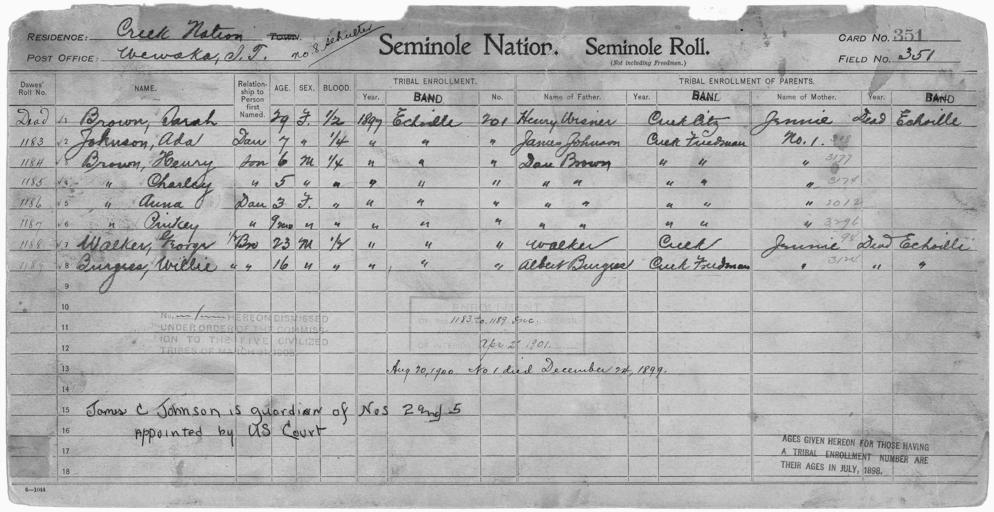 RESIDENCE: Creek Nation TOWN. CARD NO. 351
POST OFFICE: Wewoka, I.T. no 8 Seminole Nation. Seminole Roll. FIELD NO. 351
(Not including Freedmen.)
Dawes' Roll No. NAME. Relationship to Person first Named. AGE. SEX. BLOOD. TRIBAL ENROLLMENT. TRIBAL ENROLLMENT OF PARENTS.
Year. BAND No. Name of Father. Year. BAND Name of Mother. Year. BAND
Dead 1 Brown, Sarah 29 F. 1/2 1897 Echoille 201 Henry Creek Jennie Dead Echoille
1183 2 Johnson, Ada Dau 7 " 1/4 " " " James Johnson Creek Freedman No. 1.
1184 3 Brown, Henry Son 6 M 1/4 " " " Dan Brown " " " 3177
1185 4 " Charley " 5 " " " " " " " " " "
1186 5 " Anna Dau 3 F. " " " " " " " " " 2012
1187 6 " " 9mo " " " " " " " " " " 3296
1188 7 Walker, George 1/2 Bro 23 M 1/2 " " " Walker Creek Jennie Dead Echoille
1189 8 Burgess, Willie " " 16 " " " " " Albert Burgess Creek Freedman " " "
9
10
No. 1 HEREON DISMISSED
UNDER ORDER OF THE COMMISSION TO THE FIVE CIVILIZED
TRIBES OF MARCH 31, 1905.
ENROLLMENT
11 1183 to 1189 Inc.
12 Apr 2 1901.
13 Aug 20, 1900 No 1 died December 24, 1899.
14
15 James C Johnson is guardian of Nos 2 and 5
16 appointed by US Court
17
18
AGES GIVEN HEREON FOR THOSE HAVING
A TRIBAL ENROLLMENT NUMBER ARE
THEIR AGES IN JULY, 1898.
6—1044